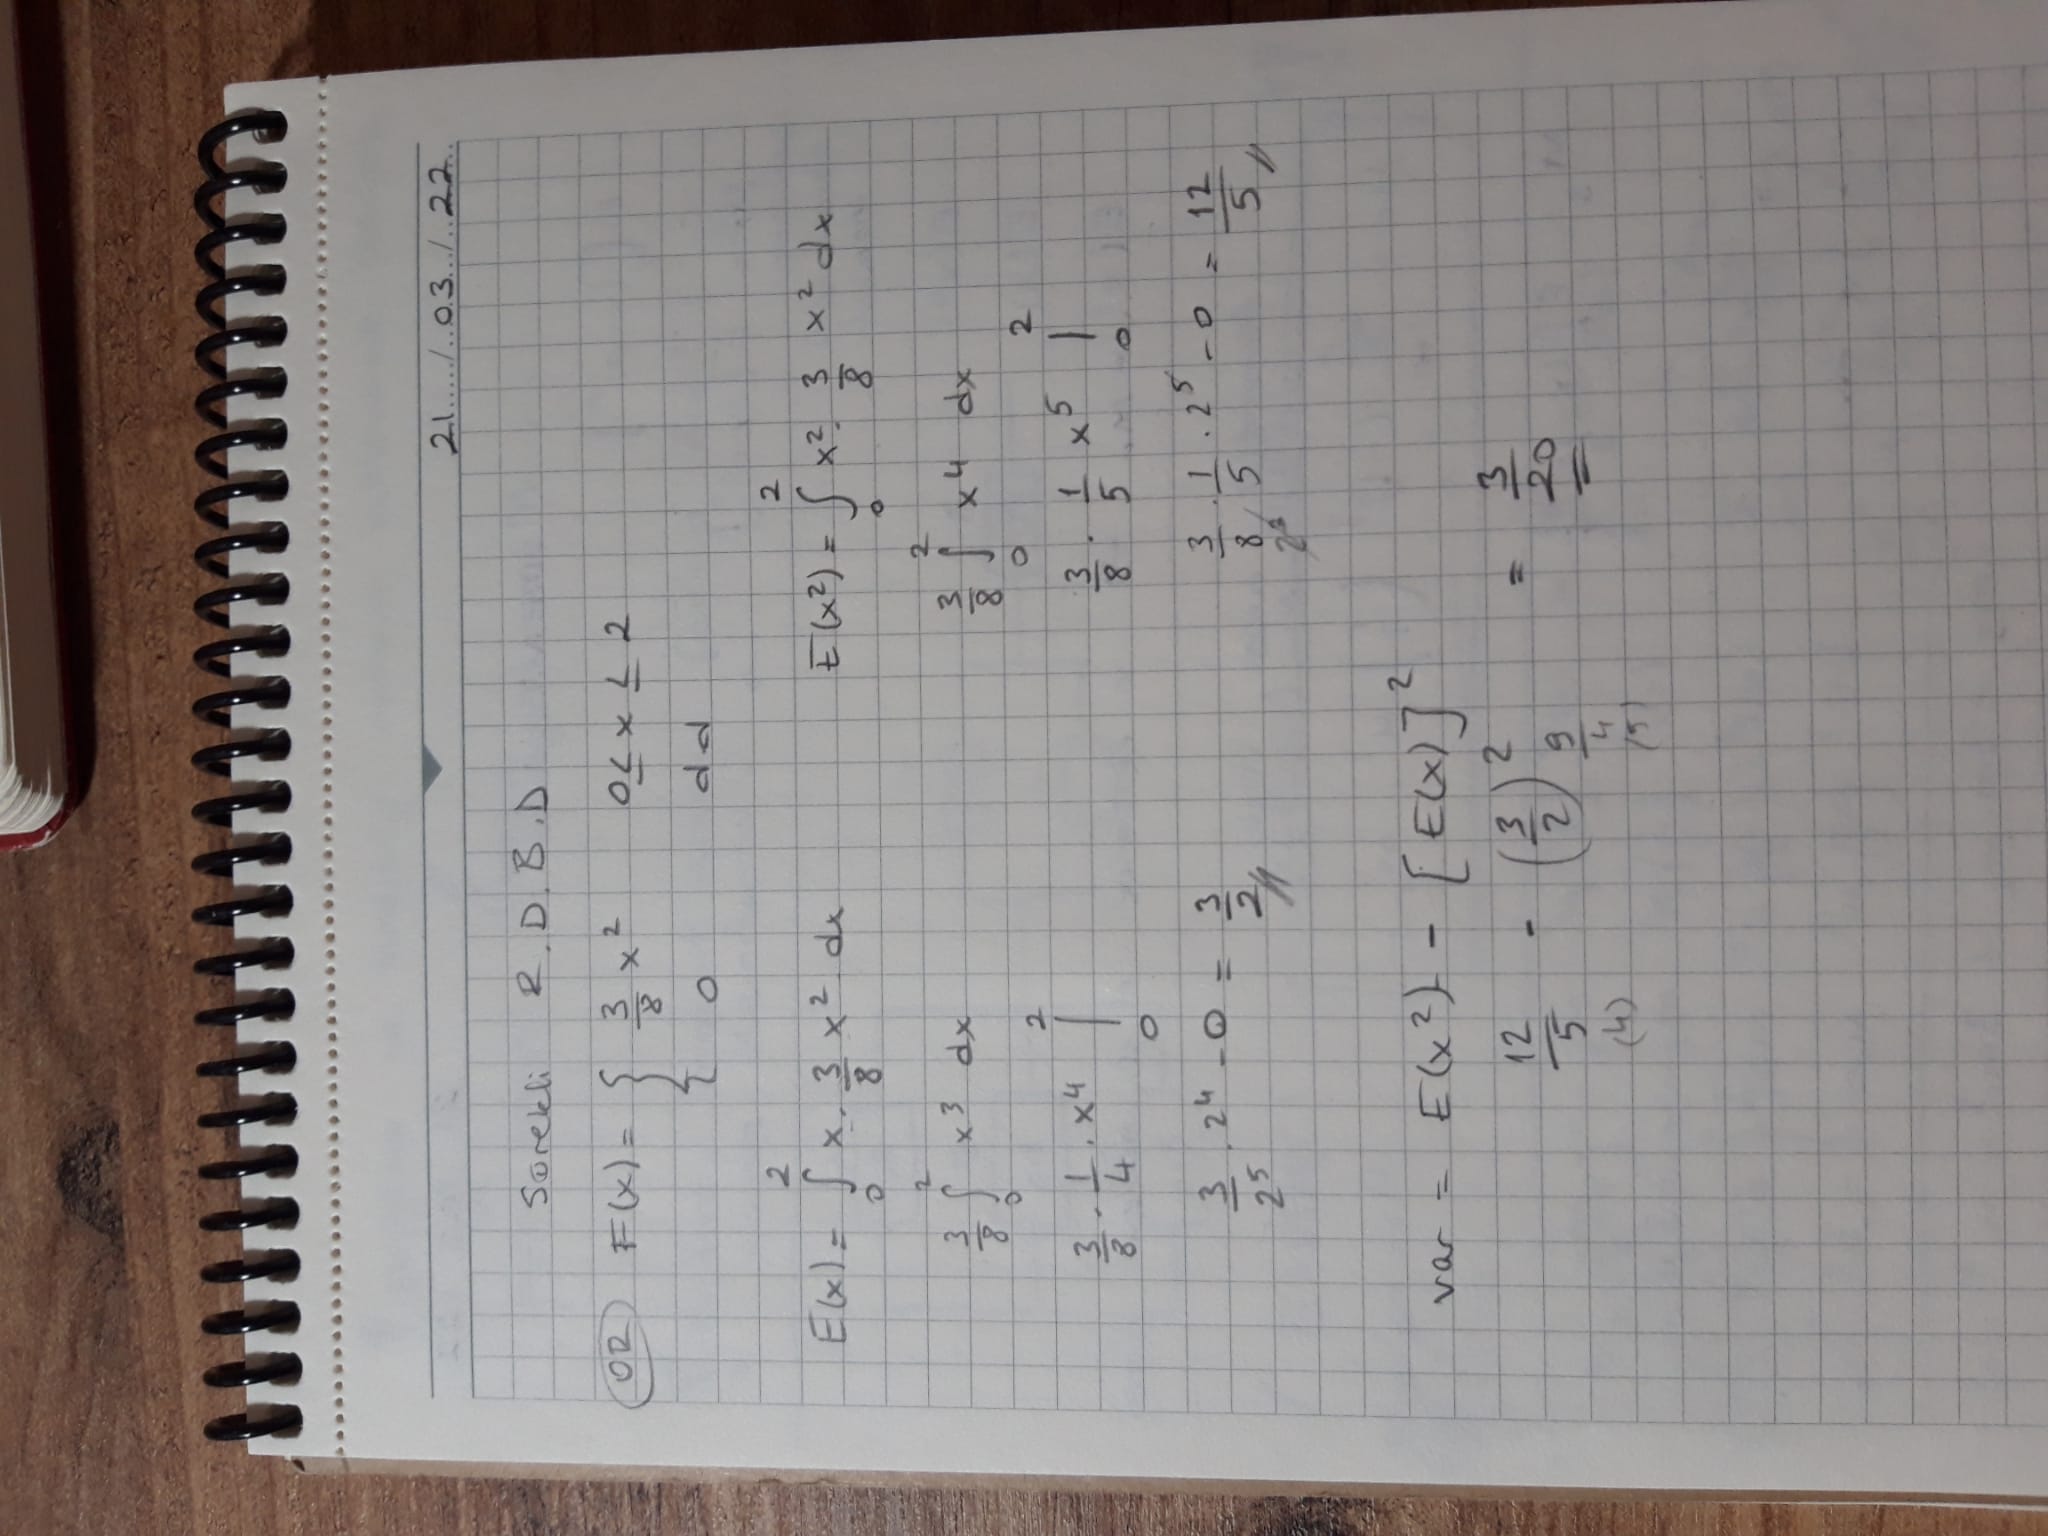 21...../..03.../..22..
Sürekli R.D.B.D
ÖR F(x) = { 3/8 x² 0 ≤ x ≤ 2
0 dd
E(x) = ∫₀² x. 3/8 x² dx
3/8 ∫₀² x³ dx
3/8 . 1/4 . x⁴ |₀²
3/2⁵ . 2⁴ - 0 = 3/2 //
E(x²) = ∫₀² x². 3/8 x² dx
3/8 ∫₀² x⁴ dx
3/8 . 1/5 x⁵ |₀²
3/8 . 1/5 . 2⁵ - 0 = 12/5 //
2³
var = E(x²) - [E(x)]²
12/5 - (3/2)² 9/4 = 3/20
(4) (5)